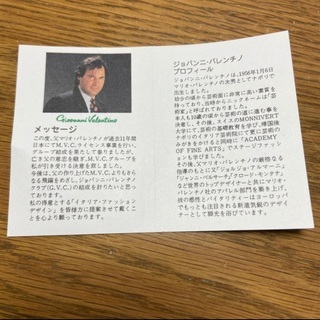 Giovanni Valentino
メッセージ
この度、父マリオ・バレンチノが過去11年間
日本にてM.V.C.ライセンス事業を行い、
グループ結成を果たして参りましたが、
亡き父の意志を継ぎ、M.V.C.グループを
私が引き受ける決意を致しました。
今後は、父の作り上げたM.V.C.よりもさ
らなる飛躍をめざし、ジョバンニ・バレンチノ
クラブ(G.V.C.)の結成を計りたいと思
っております。
私の得意とする「イタリア・ファッション
デザイン」を皆様方に提案させて戴くこ
とを心より願っております。
ジョバンニ・バレンチノ
プロフィール
ジョバンニ・バレンチノは、1956年1月6日
マリオ・バレンチノの次男としてナポリで
出生しました。
幼少の頃から芸術面に非常に高い素質を
持っており、当時からニックネームは「芸
術家」と呼ばれておりました。
本人も13歳の頃から芸術の道に進む事を
決意し、その後、スイスのMONNIVERT
学院にて、芸術の基礎教育を学び、帰国後
ナポリのイタリア芸術院にて更に芸術の
みがきをかけると同時に「ACADEMY
OF FINE ARTS」でステージファッシ
ョンも学びました。
その後、父マリオ・バレンチノの厳格なる
指導のもとに又「ジョルジォ・アルマーニ」
「ジャンニ・ベルサーチ」「クロード・モンタナ」
など世界のトップデザイナーと共にマリオ・
バレンチノ社のアパレル部門を築き上げ、
技の感性とバイタリティーはヨーロッパ
でもっとも注目される新進気鋭のデザイ
ナーとして脚光を浴びています。